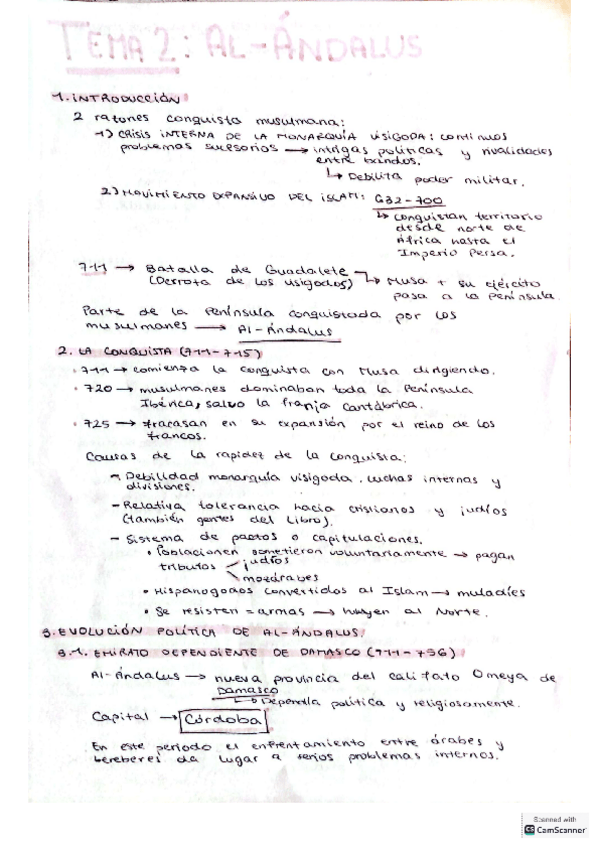 TEMA 2: AL-ÁNDALUS
1. INTRODUCCIÓN
2 razones conquista musulmana:
1) CRISIS INTERNA DE LA MONARQUÍA VISIGODA: continuos
problemas sucesorios → intrigas políticas y rivalidades
entre bandos.
↳ Debilita poder militar.
2) MOVIMIENTO EXPANSIVO DEL ISLAM: 632-700
↳ conquistan territorio
desde norte de
África hasta el
Imperio Persa.
711 → Batalla de Guadalete
(Derrota de los visigodos) ↳ Musa + su ejército
pasa a la Península.
Parte de la Península conquistada por los
musulmanes → Al-Ándalus
2. LA CONQUISTA (711-715)
· 711 → comienza la conquista con Musa dirigiendo.
· 720 → musulmanes dominaban toda la Península
Ibérica, salvo la franja cantábrica.
· 725 → fracasan en su expansión por el reino de los
francos.
Causas de la rapidez de la conquista:
- Debilidad monarquía visigoda. luchas internas y
divisiones.
- Relativa tolerancia hacia cristianos y judíos
(también gentes del Libro).
- Sistema de pactos o capitulaciones.
• Poblaciones sometieron voluntariamente → pagan
tributos judíos
mozárabes
• Hispanogodos convertidos al Islam → muladíes
• Se resisten = armas → huyen al Norte.
3. EVOLUCIÓN POLÍTICA DE AL-ÁNDALUS.
3.1. EMIRATO DEPENDIENTE DE DAMASCO (711-756)
Al-Ándalus → nueva provincia del califato Omeya de
Damasco
↳ Dependía política y religiosamente.
Capital → Córdoba
En este periodo el enfrentamiento entre árabes y
bereberes da lugar a serios problemas internos.
Scanned with
CS CamScanner